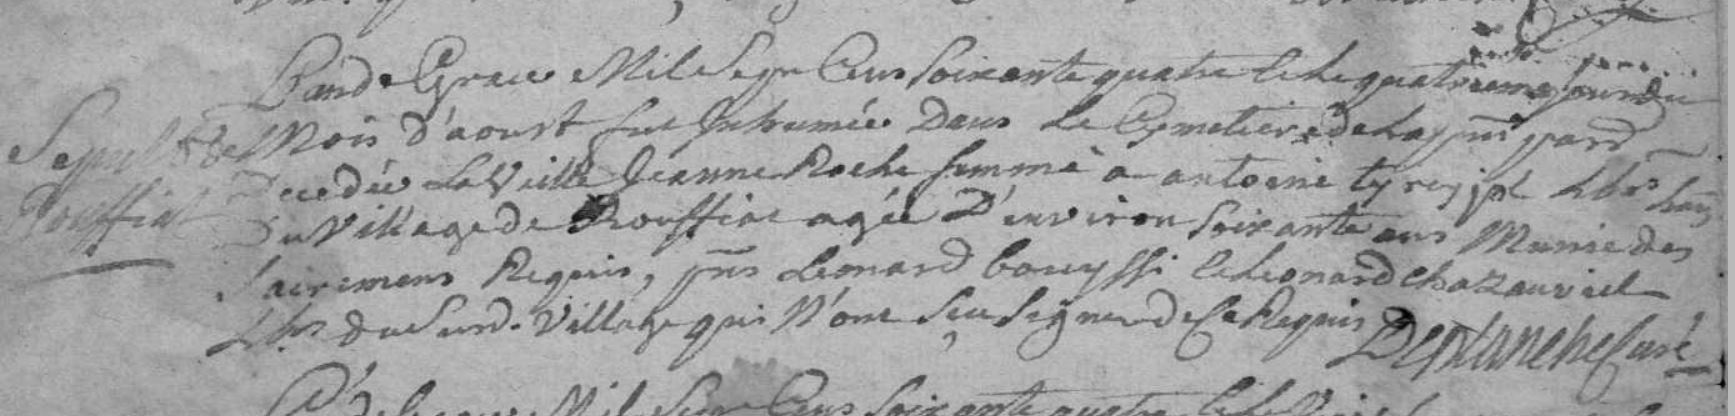 Sepulture
Rouffiat
L'an de Grace Mil Sept Cens Soixante quatre et le quatrieme Jour du
Mois d'aoust fut Inhumée Dans Le Cymetiere de La pnte parr
Decedée La Veille Jeanne Roche femme a antoine
Du Village de Rouffiat agée D'environ soixante ans Munie des
Sacremens Requis, pns Leonard et Leonard Chazauviel
Lbrs du Surd. Village qui N'ont Sçu Signer de Ce Requis
Deplanche Curé
Mil Sept Cens Soixante quatre et le